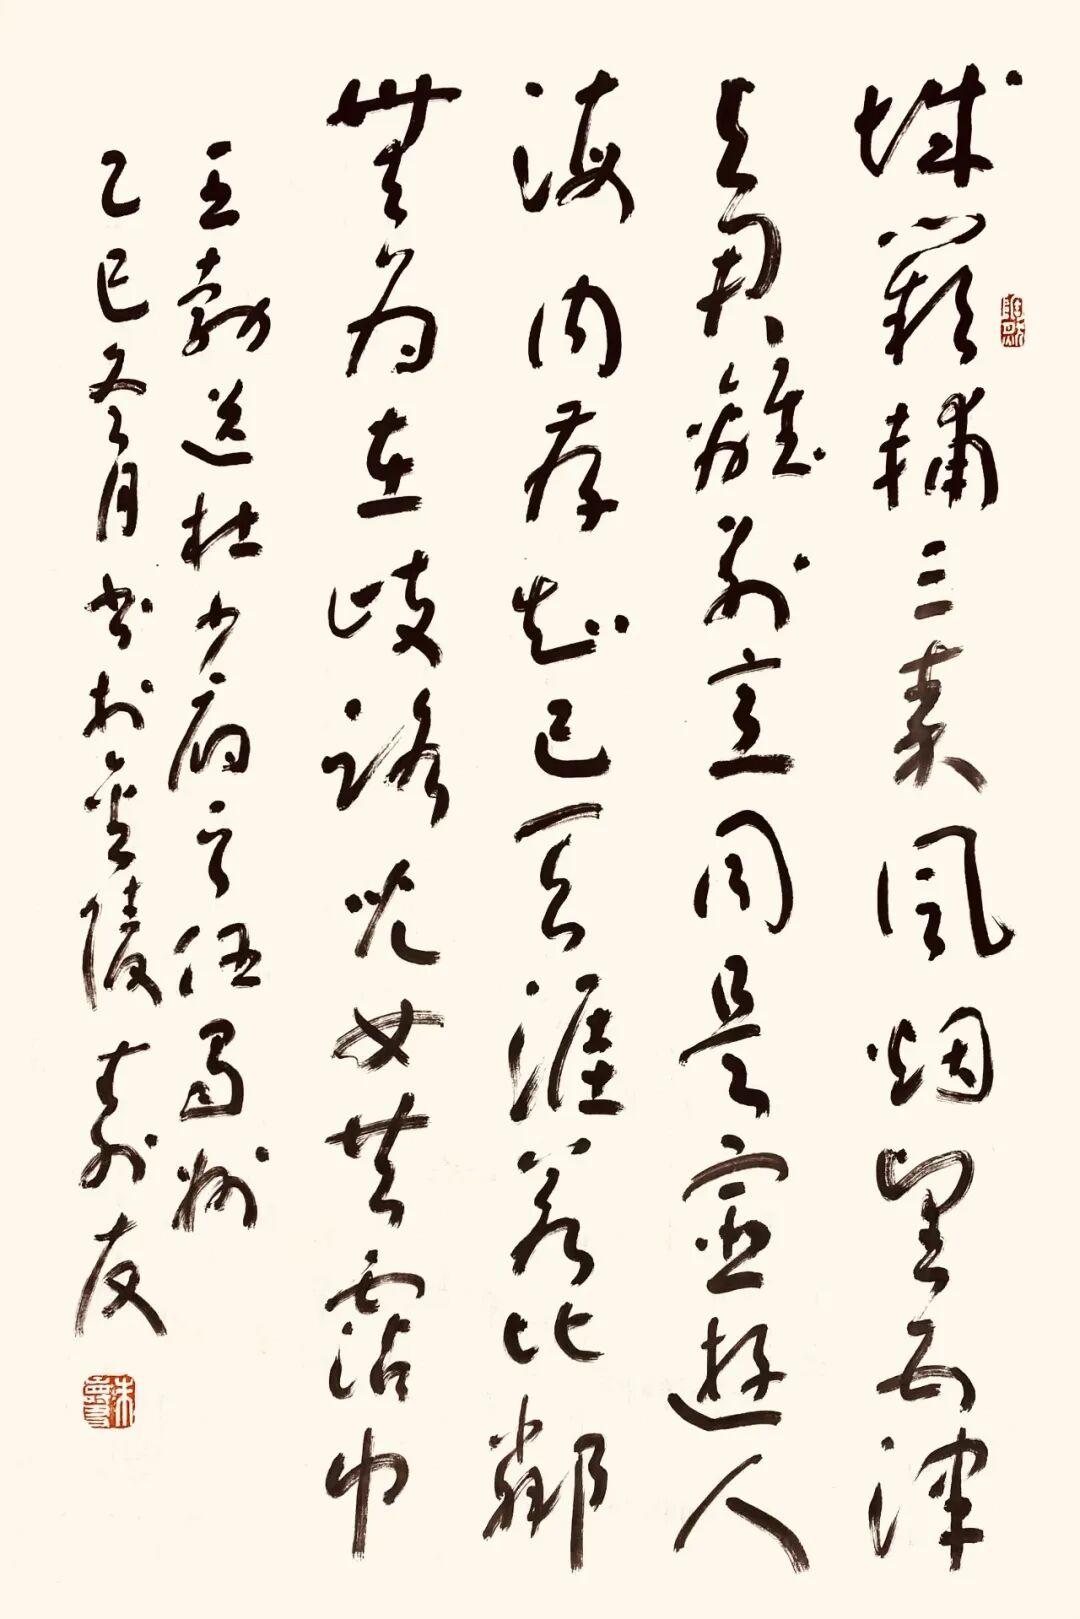 城闕輔三秦風烟望五津
与君離別意同是宦遊人
海内存知己天涯若比鄰
無為在歧路兒女共霑巾
王勃送杜少府之任蜀州
乙巳冬月書於金陵壽友
朱壽友